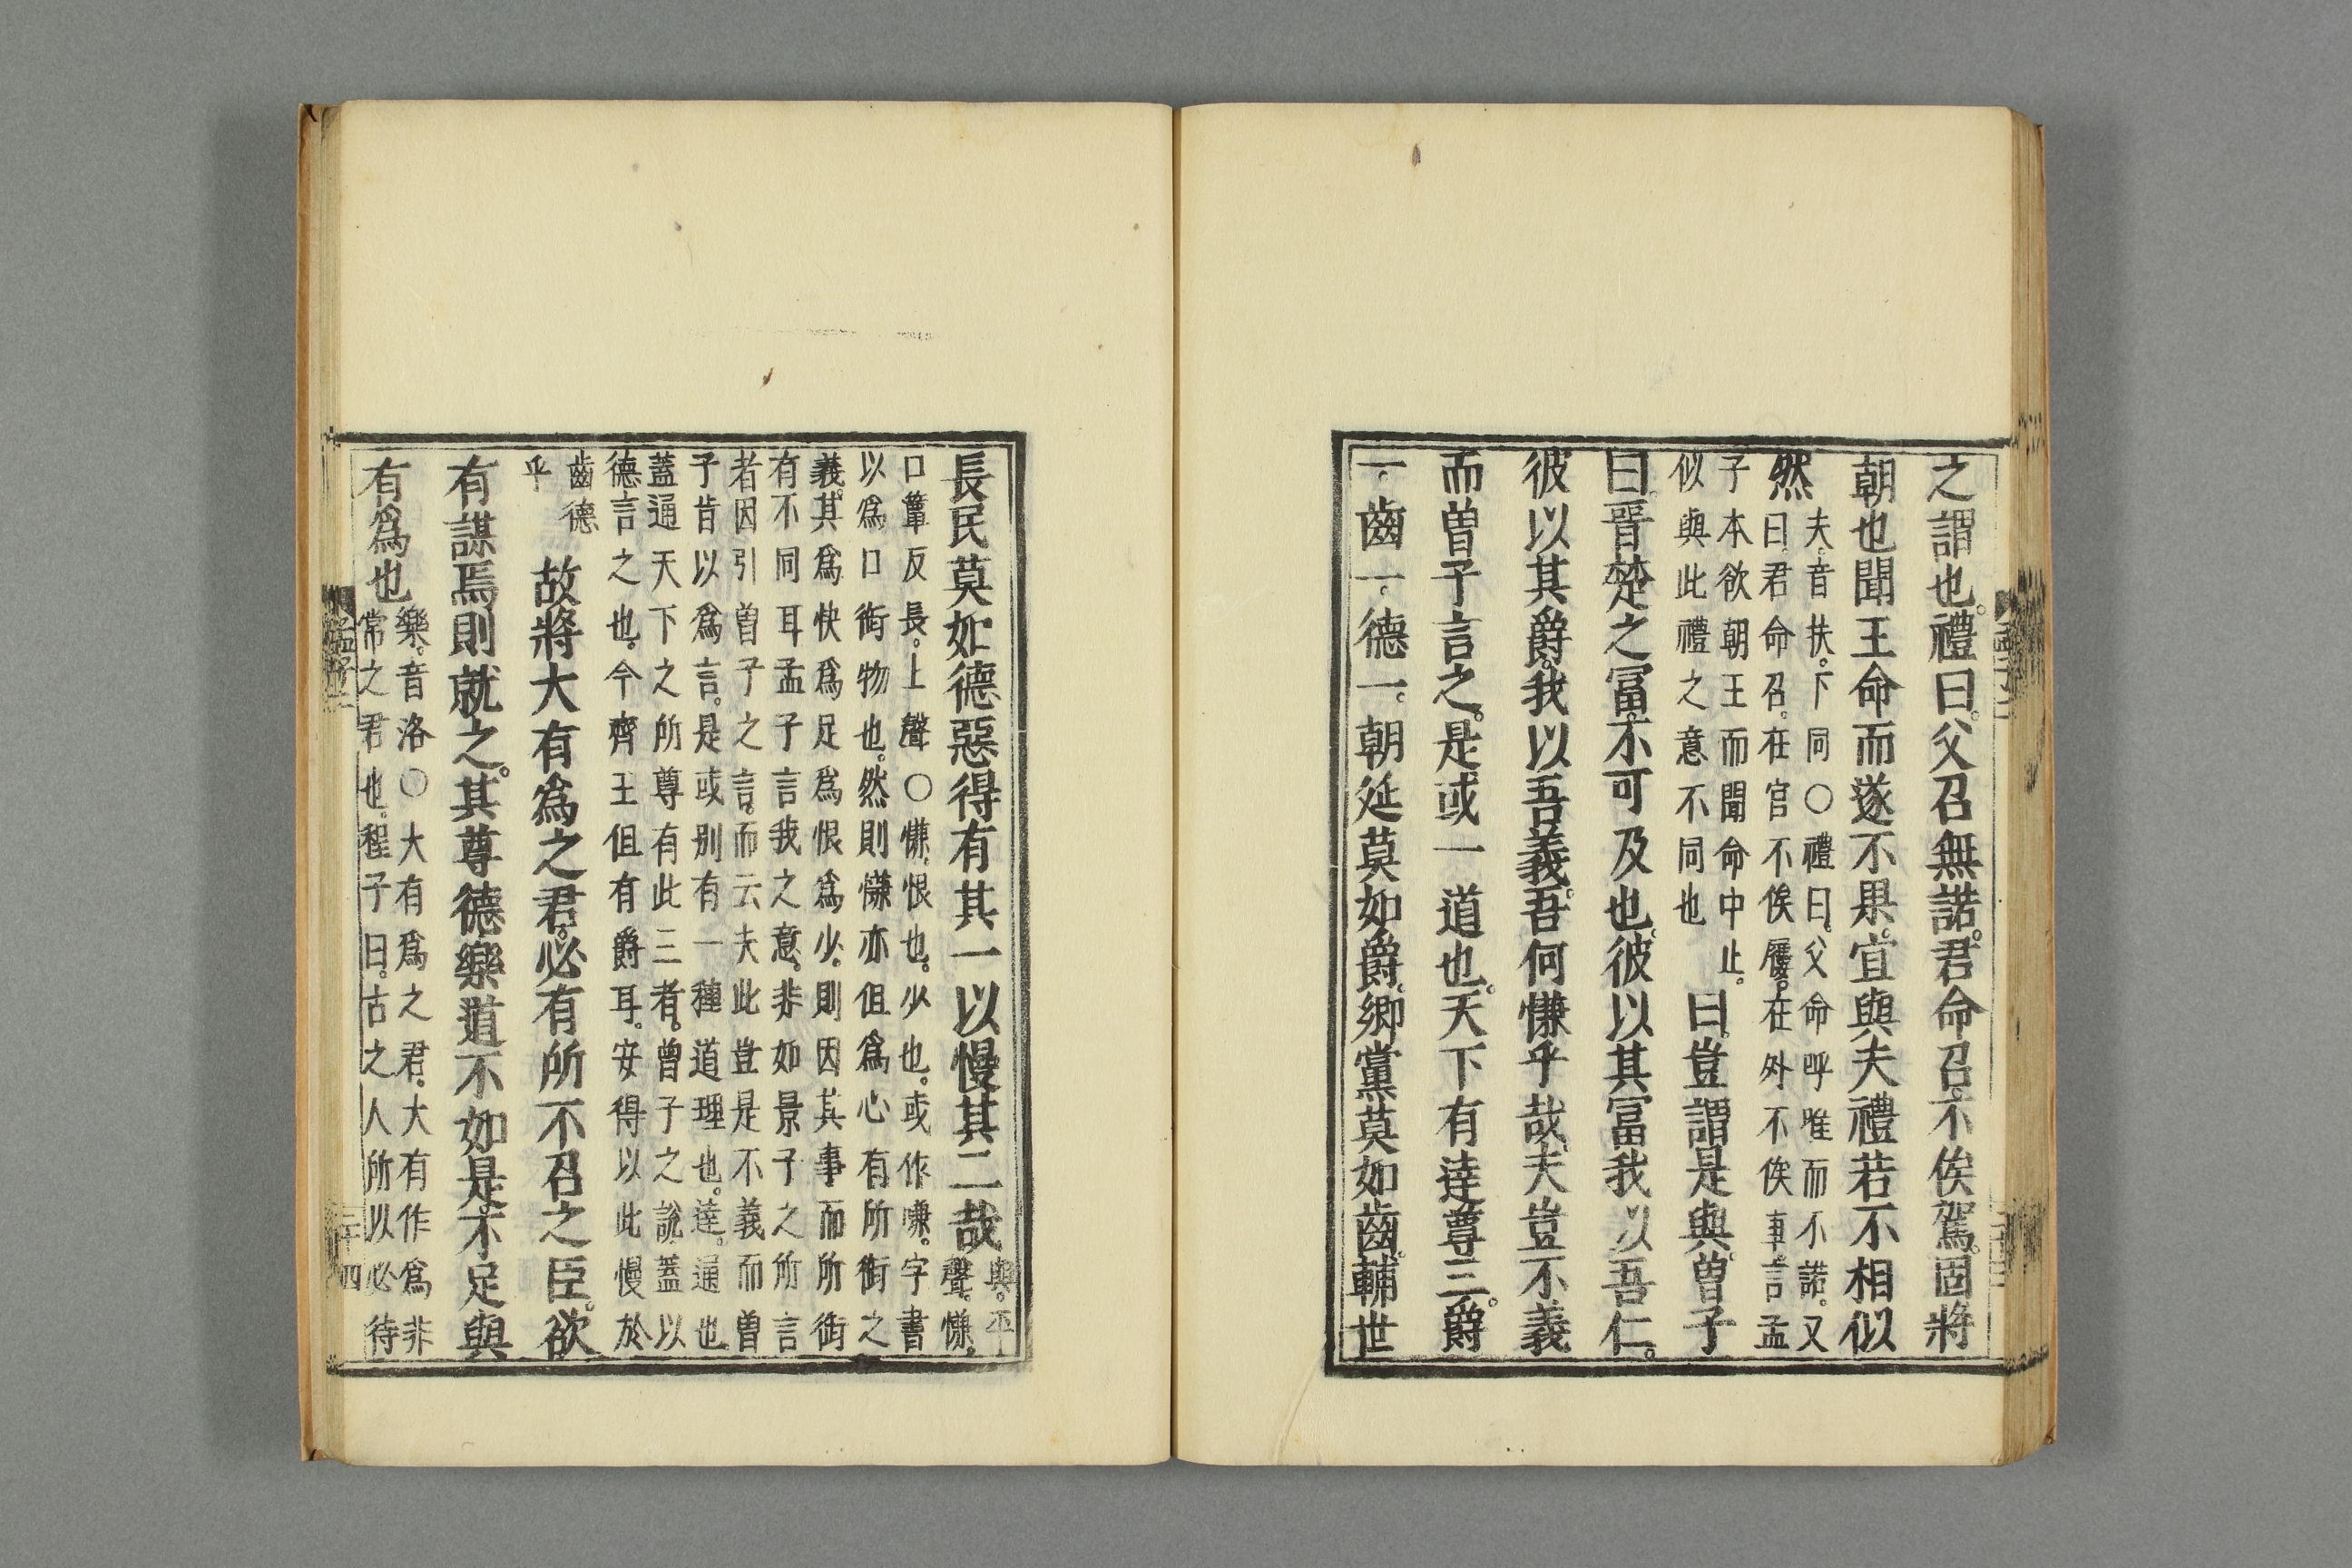 之謂也。禮曰。父召無諾。君命召。不俟駕。固將
朝也聞王命而遂不果。宜與夫禮若不相似
然
夫。音扶。下同〇禮曰。父命呼唯而不諾。又
曰。君命召。在官不俟屨。在外不俟車言孟
子本欲朝王而聞命中止。
似與此禮之意不同也
曰。豈謂是與。曾子
曰。晉楚之富。不可及也。彼以其富我以吾仁。
彼以其爵。我以吾義。吾何慊乎哉。夫豈不義
而曾子言之。是或一道也。天下有達尊三。爵
一。齒一。德一。朝廷莫如爵。鄉黨莫如齒。輔世
長民莫如德惡得有其一以慢其二哉
與。平
聲。慊。
口簟反長。上聲〇慊。恨也。少也。或作嗛。字書
以爲口銜物也。然則慊亦但爲心有所銜之
義。其爲快爲足爲恨爲少。則因其事而所銜
有不同耳孟子言我之意。非如景子之所言
者因引曾子之言。而云夫此豈是不義而曾
子肯以爲言。是或别有一種道理也。達。通也
蓋通天下之所尊有此三者。曾子之說。蓋以
德言之也。今齊王但有爵耳。安得以此慢於
齒德
乎
故將大有爲之君。必有所不召之臣。欲
有謀焉則就之。其尊德樂道不如是。不足與
有爲也
樂。音洛〇大有爲之君。大有作爲非
常之君也。程子曰。古之人所以必待
二十四